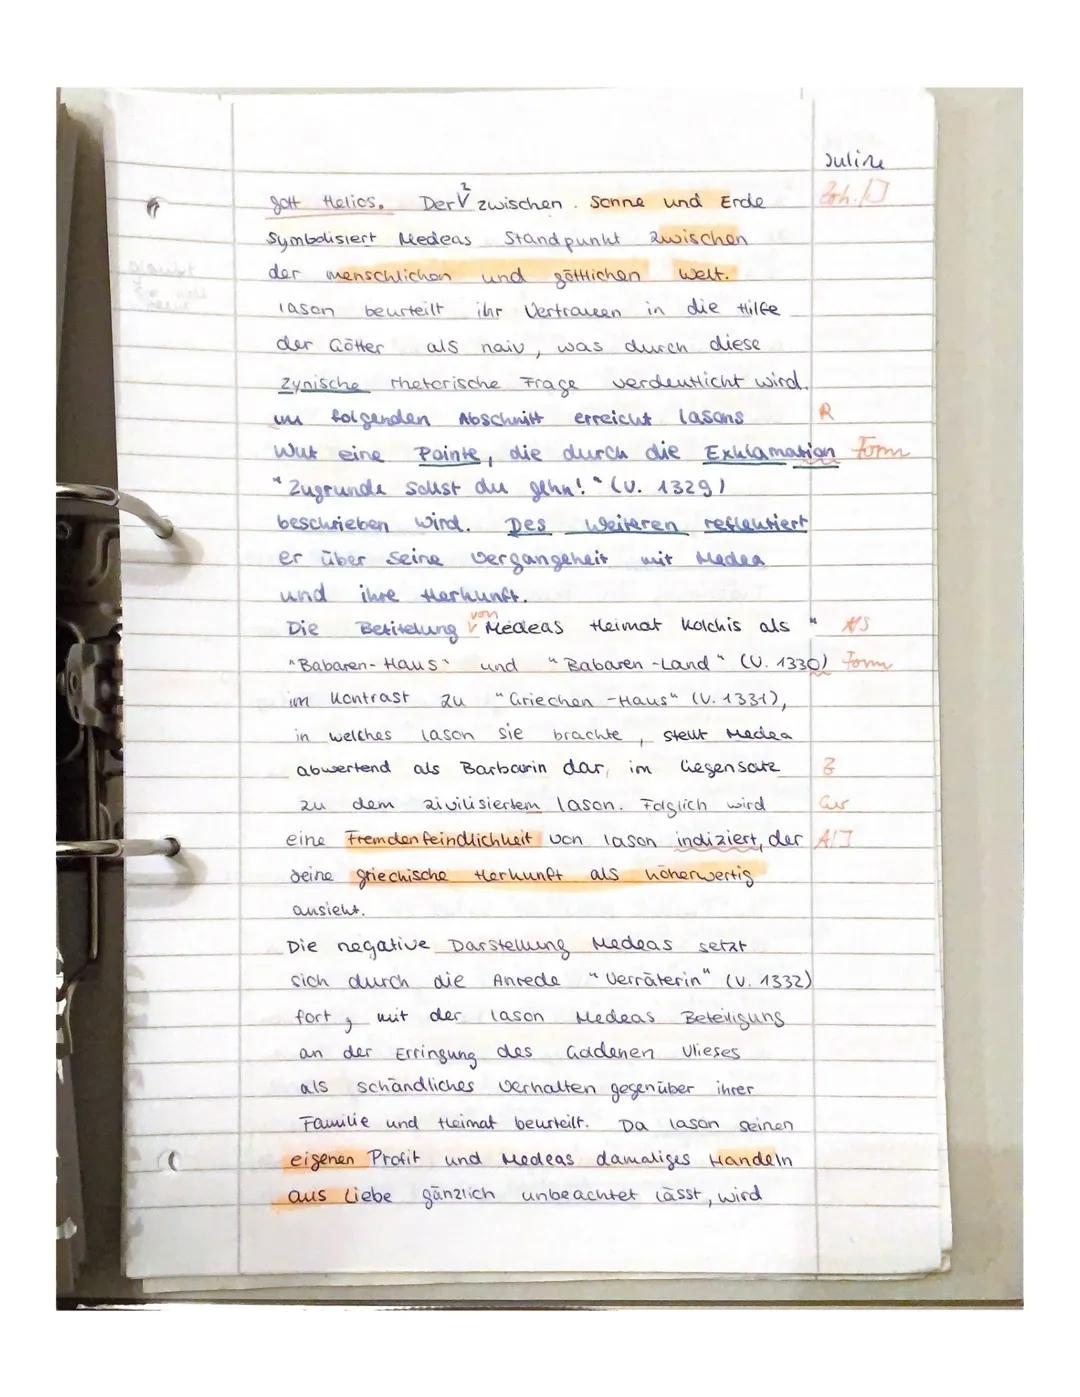 Juline
gott Helios. Der √² zwischen Sonne und Erde Zsh./[]
Symbolisiert Medeas Standpunkt zwischen
der menschlichen und göttlichen Welt.
Iason beurteilt ihr Vertrauen in die Hilfe
der Götter als naiv, was durch diese
zynische rhetorische Frage verdeutlicht wird.
im folgenden Abschnitt erreicht Iasons R
Wut eine Pointe, die durch die Exklamation Form
"Zugrunde sollst du gehn!" (V. 1329)
beschrieben wird. Des Weiteren reflektiert
er über seine Vergangeheit mit Medea
und ihre Herkunft.
Die Betitelung von Medeas Heimat Kolchis als " AS
"Babaren-Haus" und "Babaren-Land" (V. 1330) Form
im Kontrast zu "Griechen-Haus" (V. 1331),
in welches Iason sie brachte, stellt Medea
abwertend als Barbarin dar, im Gegensatz Z
zu dem zivilisiertem Iason. Folglich wird Gr
eine Fremdenfeindlichkeit von Iason indiziert, der A/[]
seine griechische Herkunft als höherwertig
ansieht.
Die negative Darstellung Medeas setzt
sich durch die Anrede "Verräterin" (V. 1332)
fort, mit der Iason Medeas Beteiligung
an der Erringung des Goldenen Vlieses
als schändliches Verhalten gegenüber ihrer
Familie und Heimat beurteilt. Da Iason seinen
eigenen Profit und Medeas damaliges Handeln
aus Liebe gänzlich unbeachtet lässt, wird